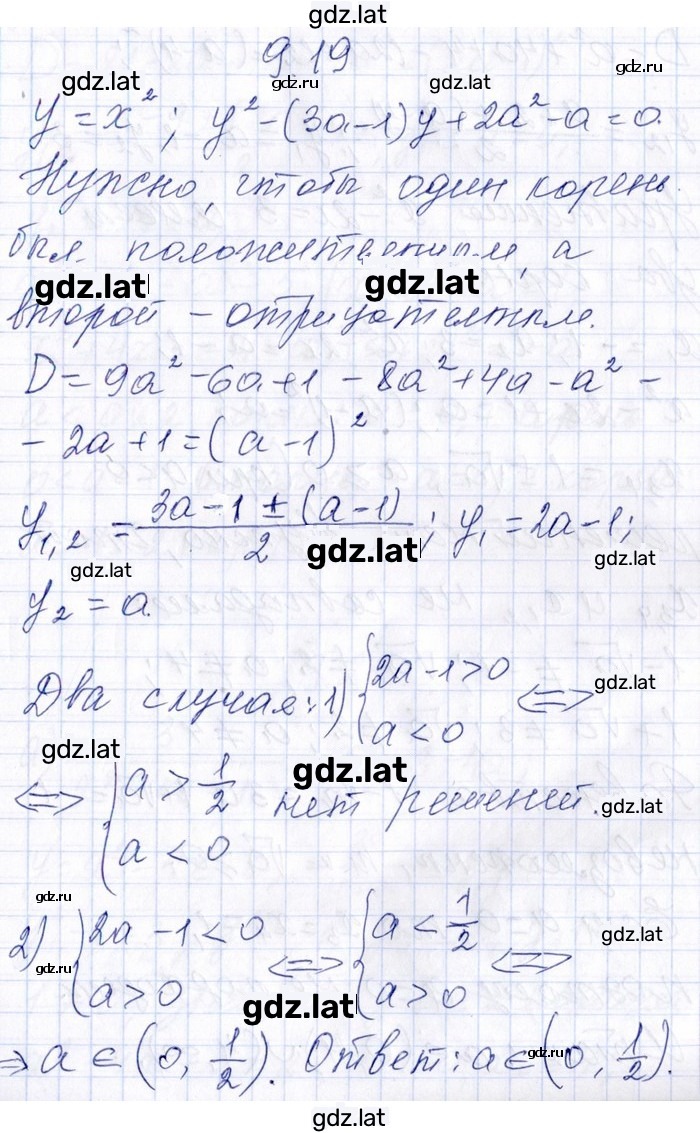 gdz.lat
9.19
gdz.lat gdz.ru gdz.lat gdz.ru
y = x²; y² - (3a - 1)y + 2a² - a = 0.
Нужно, чтобы один корень
был положительным, а
gdz.lat gdz.lat
второй - отрицательным.
D = 9a² - 6a + 1 - 8a² + 4a - a² -
- 2a + 1 = (a - 1)²
y₁,₂ = (3a - 1 ± (a - 1))/2; y₁ = 2a - 1;
gdz.lat gdz.lat gdz.lat
y₂ = a.
Два случая: 1) { 2a - 1 > 0 <=>
a < 0
gdz.lat
gdz.lat gdz.lat
<=> { a > 1/2 нет решений.
gdz.lat
a < 0
gdz.ru gdz.lat
2) { 2a - 1 < 0 <=> { a < 1/2 <=>
a > 0 a > 0
gdz.ru gdz.lat
=> a ∈ (0, 1/2). Ответ: a ∈ (0, 1/2).
gdz.ru
gdz.lat